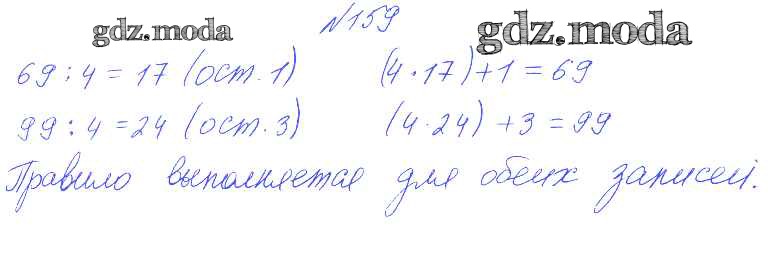 №159
gdz.moda gdz.moda
69 : 4 = 17 (ост. 1) (4 · 17) + 1 = 69
99 : 4 = 24 (ост. 3) (4 · 24) + 3 = 99
Правило выполняется для обеих записей.